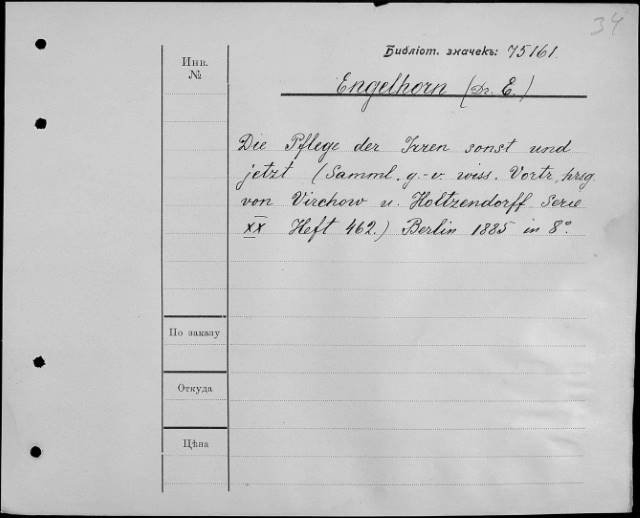 34
Библіот. значекъ: 75161
Инв.
№
Engelhorn (Dr. E.)
Die Pflege der Irren sonst und
jetzt (Samml. g.-v. wiss. Vortr. hrsg.
von Virchow u. Holtzendorff Serie
XX Heft 462.) Berlin 1885 in 8°.
По заказу
Откуда
Цѣна